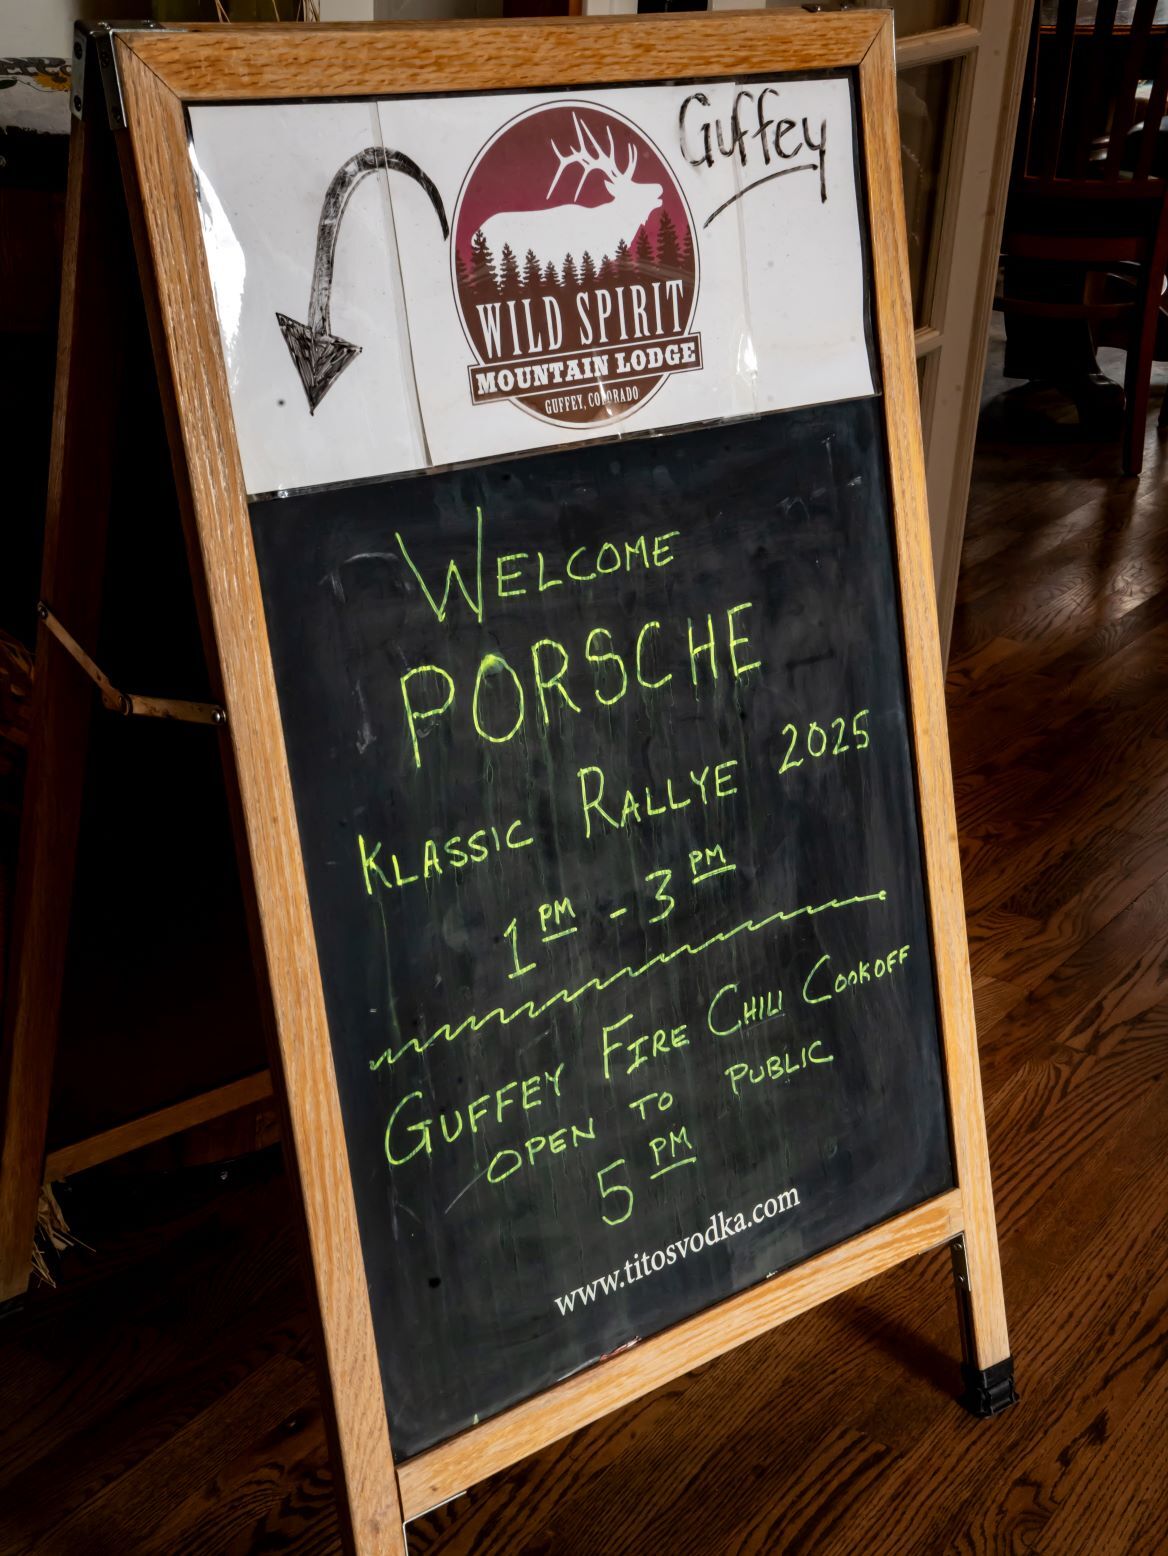 Guffey
WILD SPIRIT
MOUNTAIN LODGE
GUFFEY, COLORADO
WELCOME
PORSCHE
KLASSIC RALLYE 2025
1PM - 3PM
GUFFEY FIRE CHILI COOKOFF
OPEN TO PUBLIC
5PM
www.titosvodka.com